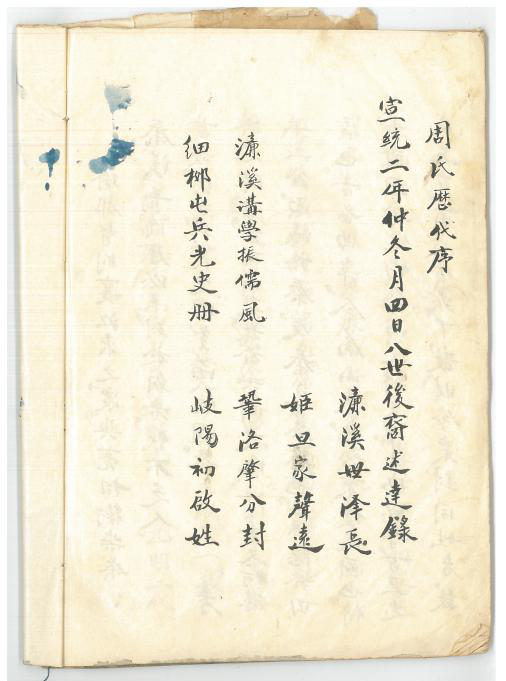 周氏歷代序
宣統二年仲冬月四日八世後裔述達錄
濂溪世泽長
姬旦家聲遠
濂溪講學振儒風
鞏洛肇分封
細柳屯兵光史册
岐陽初啟姓